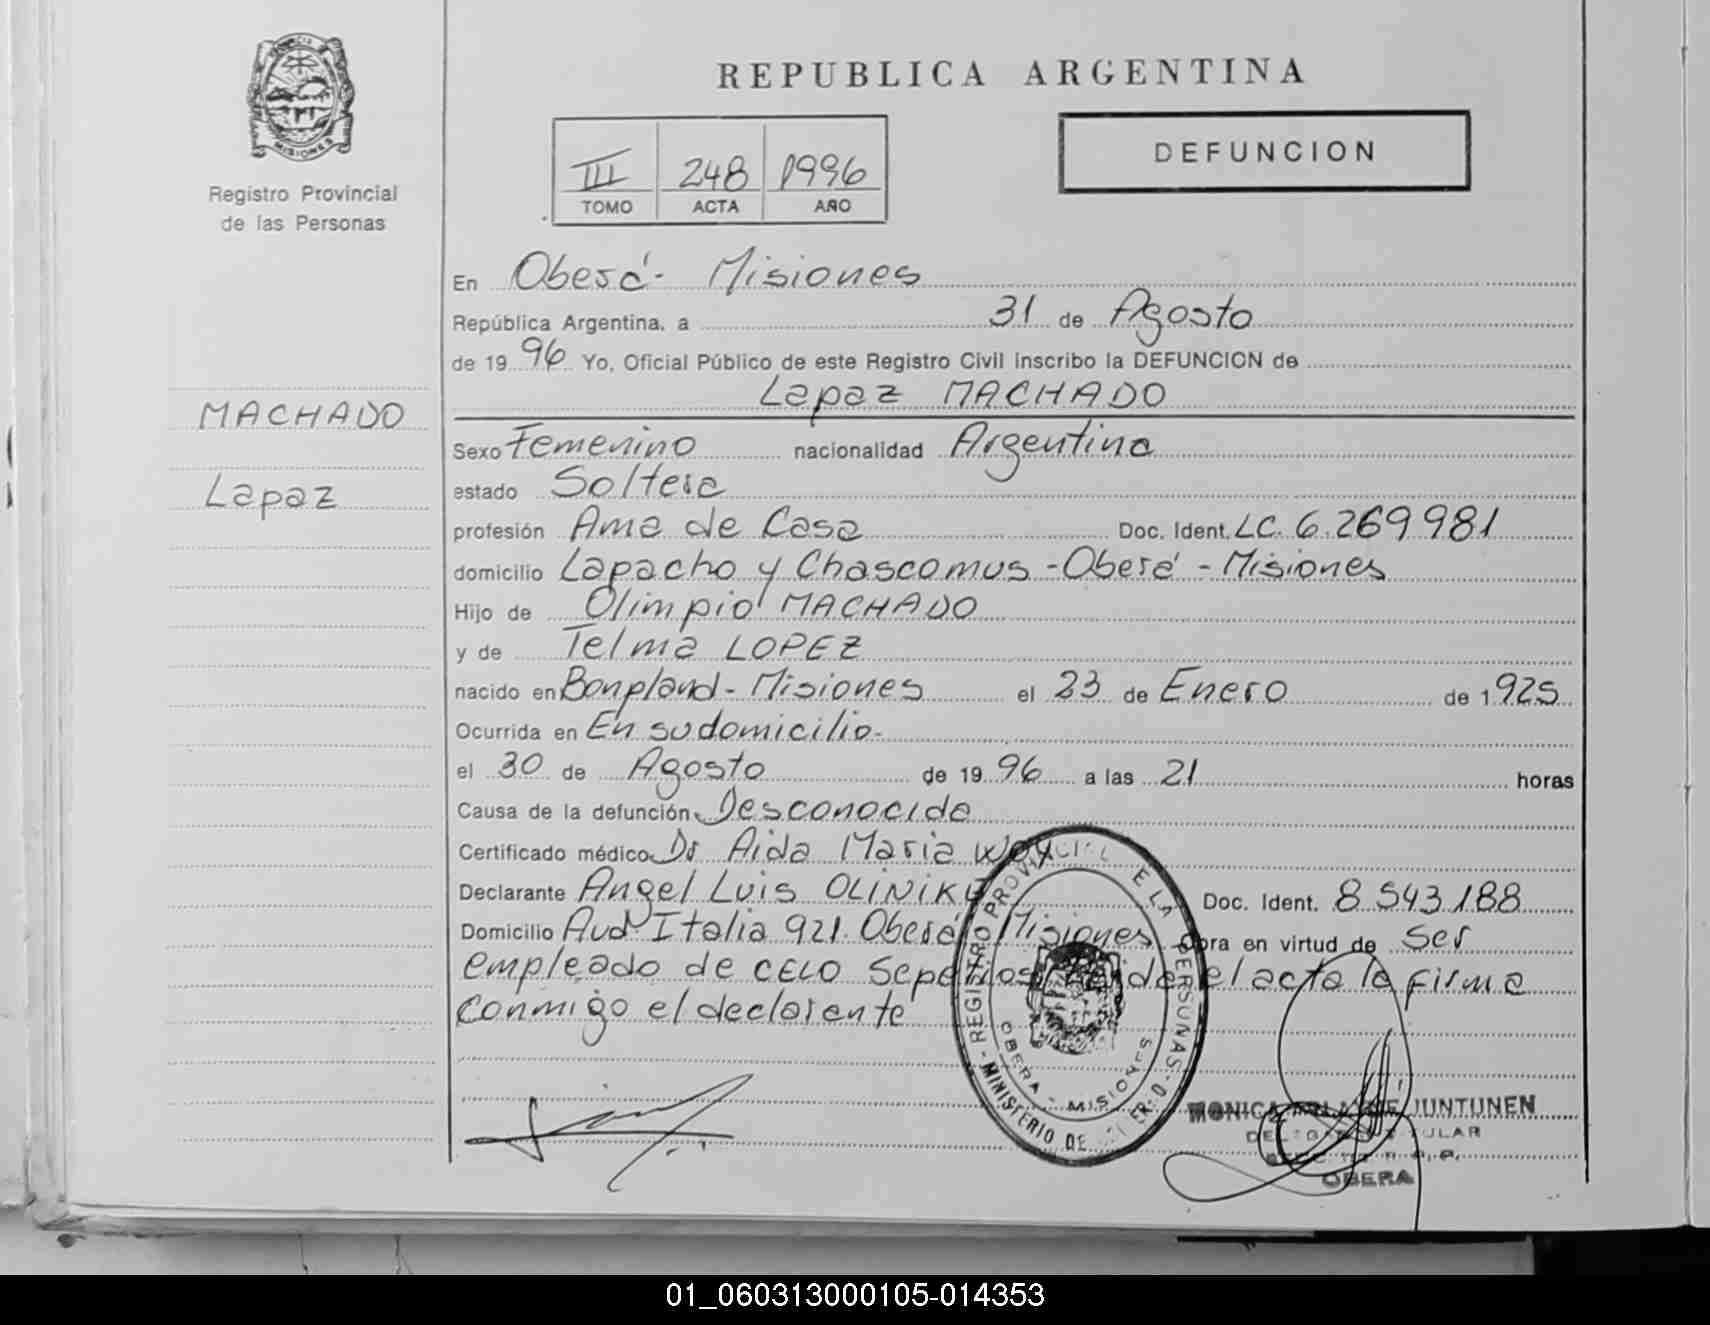 REPUBLICA ARGENTINA
DEFUNCION
III 248 1996
TOMO ACTA AÑO
MISIONES
Registro Provincial
de las Personas
MACHADO
Lapaz
En Oberá - Misiones
República Argentina, a 31 de Agosto
de 19 96 Yo, Oficial Público de este Registro Civil inscribo la DEFUNCION de
Lapaz MACHADO
Sexo Femenino nacionalidad Argentina
estado Soltera
profesión Ama de Casa Doc. Ident. LC. 6.269981
domicilio Lapacho y Chascomus - Oberá - Misiones
Hijo de Olimpio MACHADO
y de Telma LOPEZ
nacido en Bonpland - Misiones el 23 de Enero de 1925
Ocurrida en En su domicilio.
el 30 de Agosto de 19 96 a las 21 horas
Causa de la defunción Desconocida
Certificado médico Dr Aida Maria
Declarante Angel Luis Doc. Ident. 8 543.188
Domicilio Avd Italia 921. Oberá Misiones Obra en virtud de Ser
empleado de CELO Sepelios el acta la firma
conmigo el declarante
REGISTRO PROVINCIAL DE LAS PERSONAS
MINISTERIO DE
OBERA - MISIONES
MONICA JUNTUNEN
OBERA
01_060313000105-014353